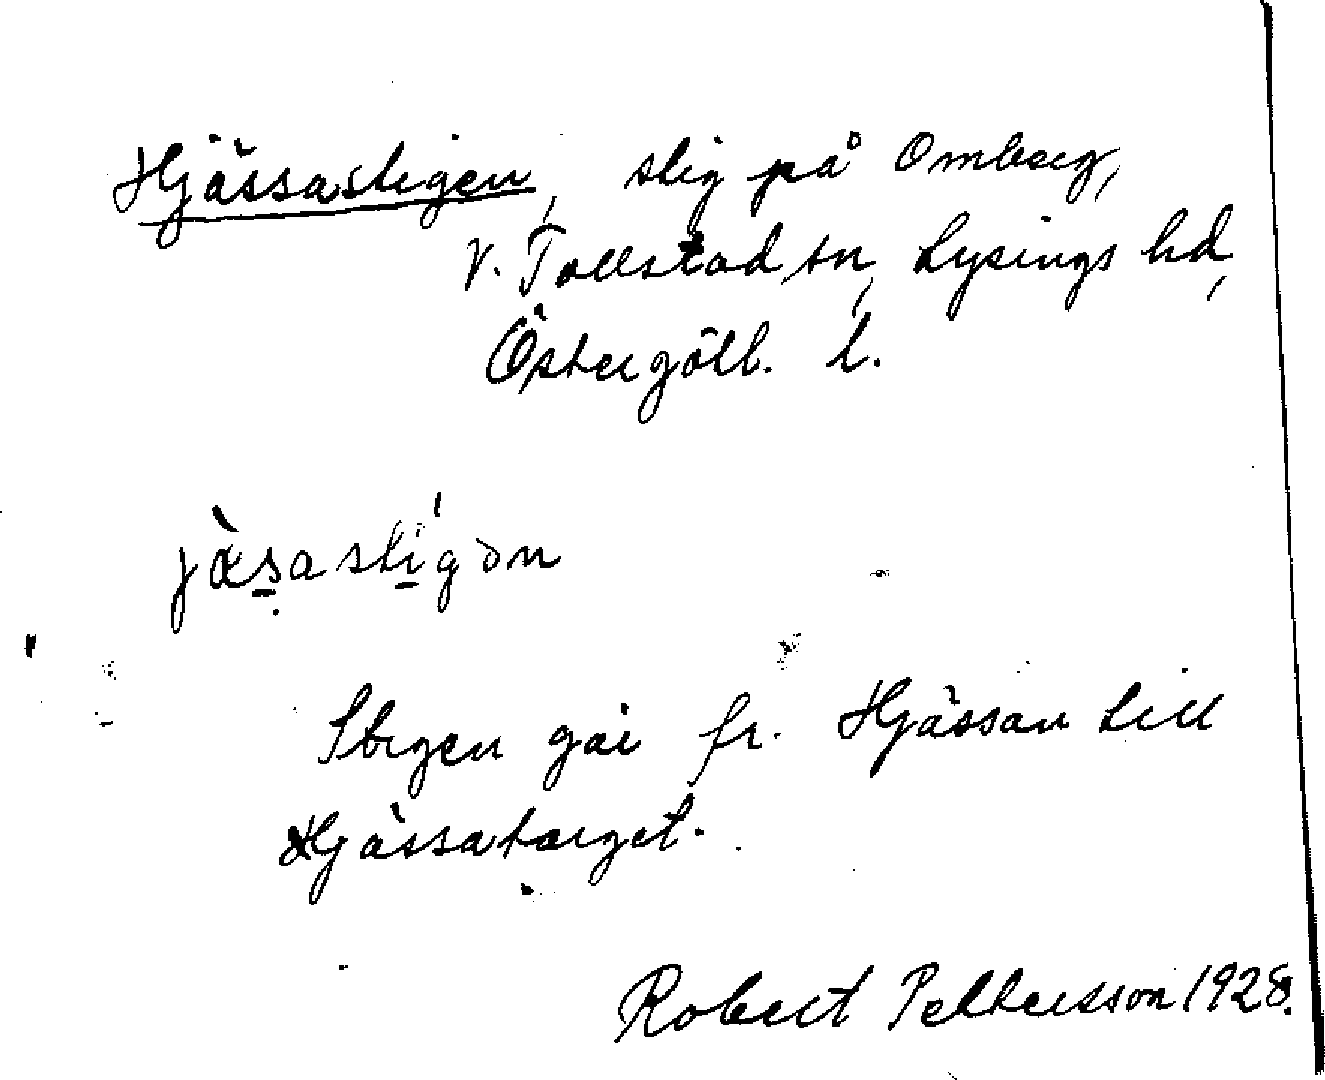 Hjässastigen, stig på Omberg,
V. Tollstad sn, Lysings hd,
Östergötl. l.
jæ̀s̠astí̠gən
Stigen går fr. Hjässan till
Hjässatorget.
Robert Pettersson 1928.